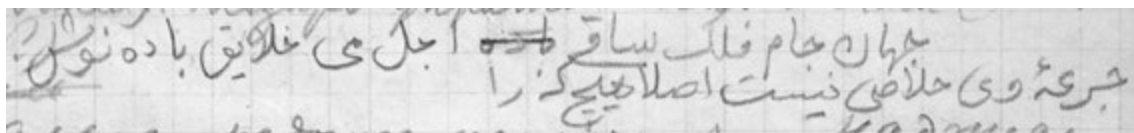 جهان جام فلک ساقے اجل می خلایق باده نوش
جرعهٔ وی خلاصی نیست اصلا هیچ کز را